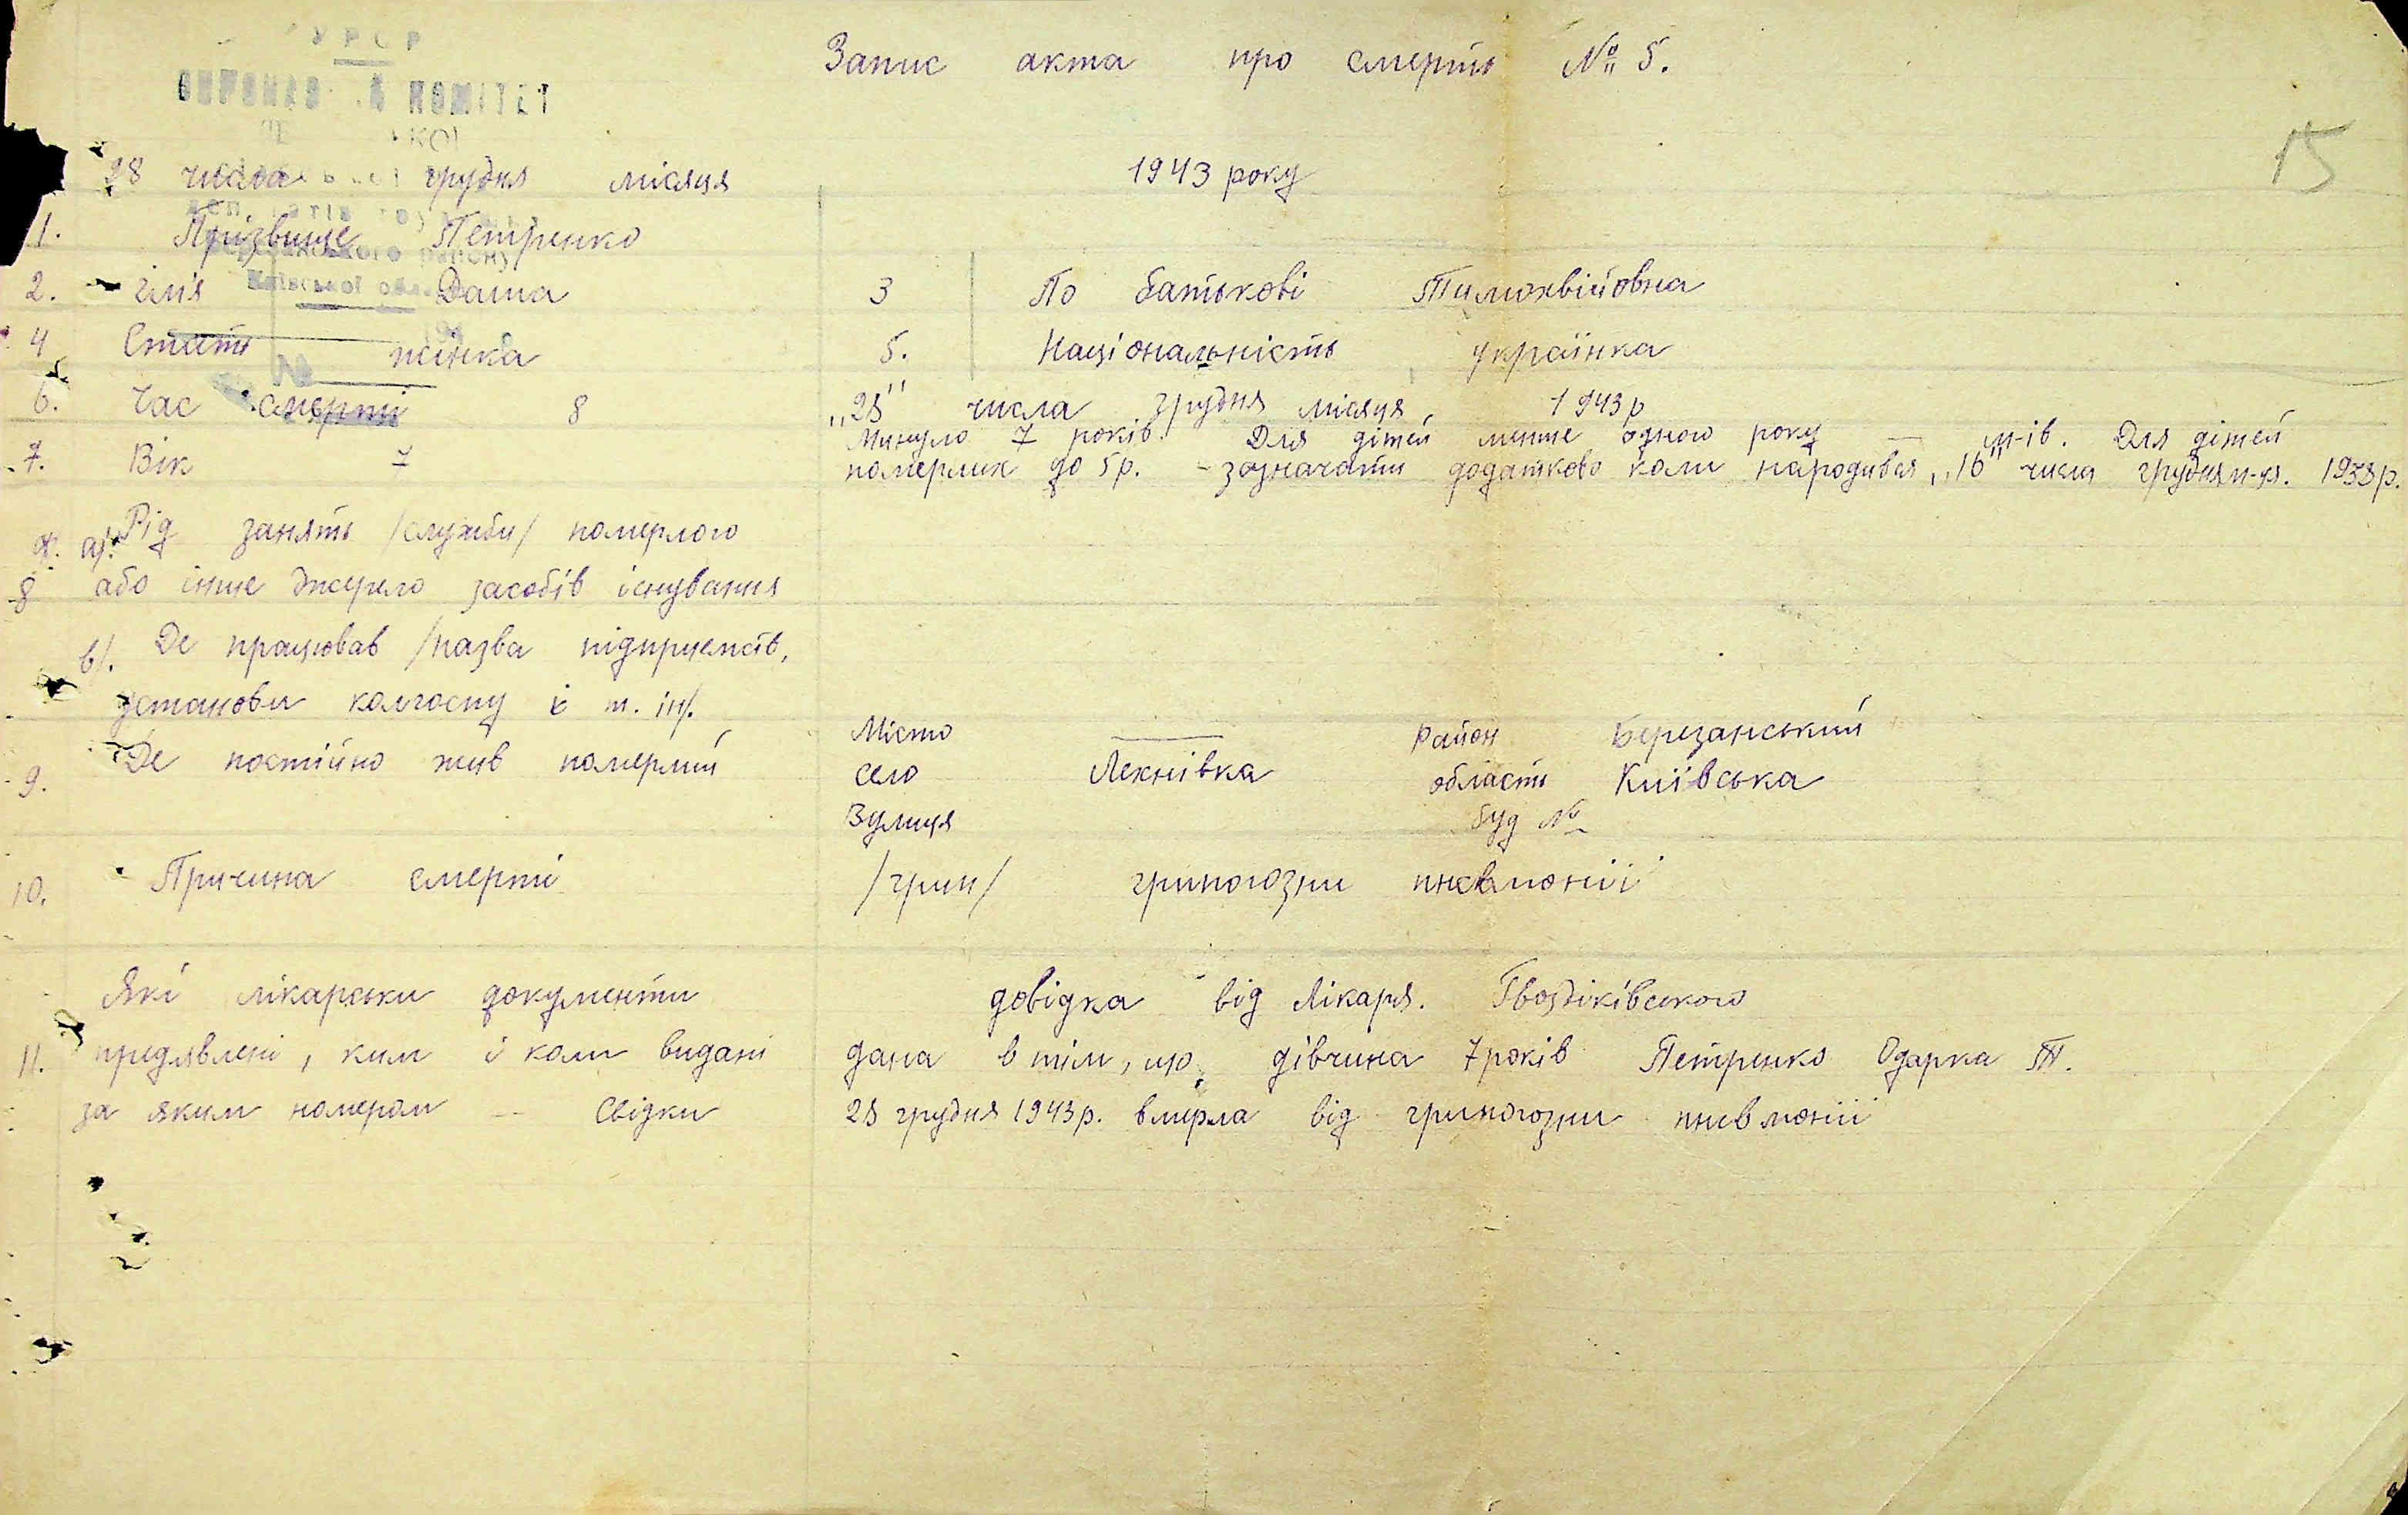 УРСР
КОМІТЕТ
Запис акта про смерть № 5.
15
28 числа грудня місяця 1943 року
1. Прізвище Петренко
2. Імʼя Даша 3 По батькові Тимохвійовна
4 Стать жінка 5. Національність українка
6. Час смерті 8 „28" числа грудня місяця 1943р
7. Вік 7 Минуло 7 років. Для дітей менше одного року — м-ів. Для дітей
померлих до 5р. - зазначати додатково коли народився „16" числа грудня м-ця. 1938р.
8 а/. Рід занять /служби/ померлого
або інше джерело засобів існування
в/. Де працював /назва підприємств,
установи колгоспу і т. ін/.
9. Де постійно жив померлий Місто — Район Березанський
село Лехнівка область Київська
Вулиця буд №
10. Причина смерті /грип/ грипогозни пневмонії
Які лікарськи документи довідка від Лікаря. Гвоздіківського
11. предявлені, ким і коли видані дана в тім, що дівчина 7 років Петренко Одарка Т.
за яким номером — Свідки 28 грудня 1943р. вмерла від грипогозни пневмонії